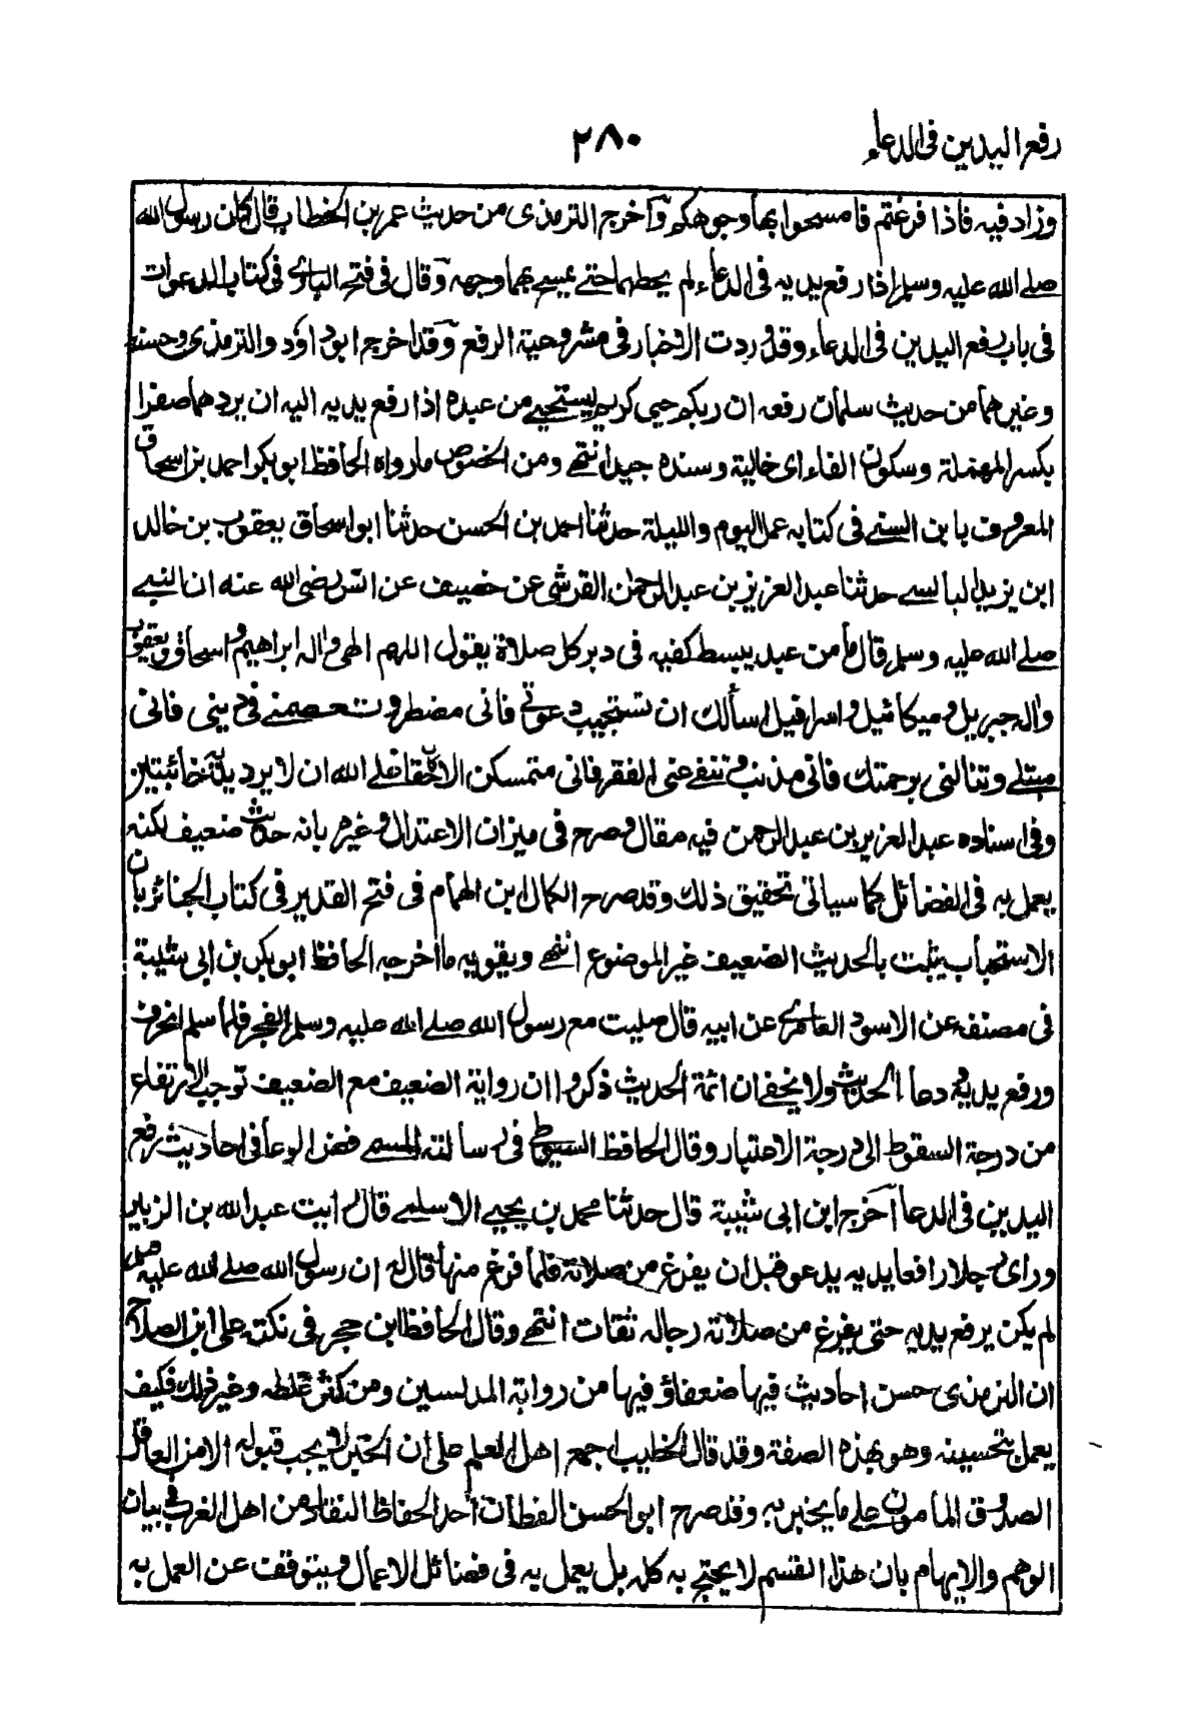 رفع اليدين فى الدعاء
٢٨٠
وزاد فيه فاذا فرغتم فامسحوا بها وجوهكم وآخرج الترمذى من حديث عمر بن الخطاب قال كان رسول الله
صلے الله عليه وسلم اذا رفع يديه فى الدعاء لم يحطهما حتے يمسح بهما وجهه وقال فى فتح البارى فى كتاب الدعوات
فى باب رفع اليدين فى الدعاء وقد وردت الاخبار فى مشروعية الرفع وقد اخرج ابو داود والترمذى وحسنه
وغيرهما من حديث سلمان رفعه ان ربكم حيى كريم يستحيے من عبده اذا رفع يديه اليه ان يردهما صفرا
بكسر المهملة وسكون الفاء اى خالية وسنده جيد انتهے ومن الخصوص ما رواه الحافظ ابو بكر احمد بن اسحاق
المعروف بابن السنے فى كتابه عمل اليوم والليلة حدثنا احمد بن الحسن حدثنا ابو اسحاق يعقوب بن خالد
ابن يزيد البالسے حدثنا عبد العزيز بن عبد الرحمن القرشى عن خصيف عن انس رضى الله عنه ان النبے
صلے الله عليه وسلم قال ما من عبد يبسط كفيه فى دبر كل صلاة يقول اللهم الهى واله ابراهيم واسحاق ويعقوب
واله جبريل وميكائيل واسرافيل اسألك ان تستجيب دعوتے فانى مضطر وتعصمنے فى دينى فانى
مبتلے وتنالنى برحمتك فانى مذنب وتنفے عنى الفقر فانى متمسكن الا كان حقا علے الله ان لا يرد يديه خائبتين
وفى اسناده عبد العزيز بن عبد الرحمن فيه مقال وصرح فى ميزان الاعتدال وغيره بانه حديث ضعيف لكنه
يعمل به فى الفضائل كما سياتى تحقيق ذلك وقد صرح الكمال ابن الهمام فى فتح القدير فى كتاب الجنائز بان
الاستحباب يثبت بالحديث الضعيف غير الموضوع انتهے ويقويه ما اخرجه الحافظ ابو بكر بن ابى شيبة
فى مصنفه عن الاسود العامرى عن ابيه قال صليت مع رسول الله صلے الله عليه وسلم الفجر فلما سلم انحرف
ورفع يديه ودعا الحديث ولا يخفے ان ائمة الحديث ذكروا ان رواية الضعيف مع الضعيف توجب الارتفاع
من درجة السقوط الى درجة الاعتبار وقال الحافظ السيوطى فى رسالته المسمے فض الوعا فى احاديث رفع
اليدين فى الدعا آخرج ابن ابى شيبة قال حدثنا محمد بن يحيے الاسلمے قال رايت عبد الله بن الزبير
وراى رجلا رافعا يديه يدعو قبل ان يفرغ من صلاته فلما فرغ منها قال له ان رسول الله صلے الله عليه وسلم
لم يكن يرفع يديه حتى يفرغ من صلاته رجاله ثقات انتهے وقال الحافظ ابن حجر فى نكته على ابن الصلاح
ان الترمذى حسن احاديث فيها ضعفاؤ وفيها من رواية المدلسين ومن كثر غلطه وغير ذلك فكيف
يعمل بتحسينه وهو بهذه الصفة وقد قال الخطيب اجمع اهل العلم على ان الخبر لا يجب قبوله الا من العاقل
الصدوق المأمون علے ما يخبر به وقد صرح ابو الحسن القطان أحد الحفاظ النقاد من اهل الغرب فى بيان
الوهم والايهام بان هذا القسم لا يحتج به كله بل يعمل به فى فضائل الاعمال ويتوقف عن العمل به